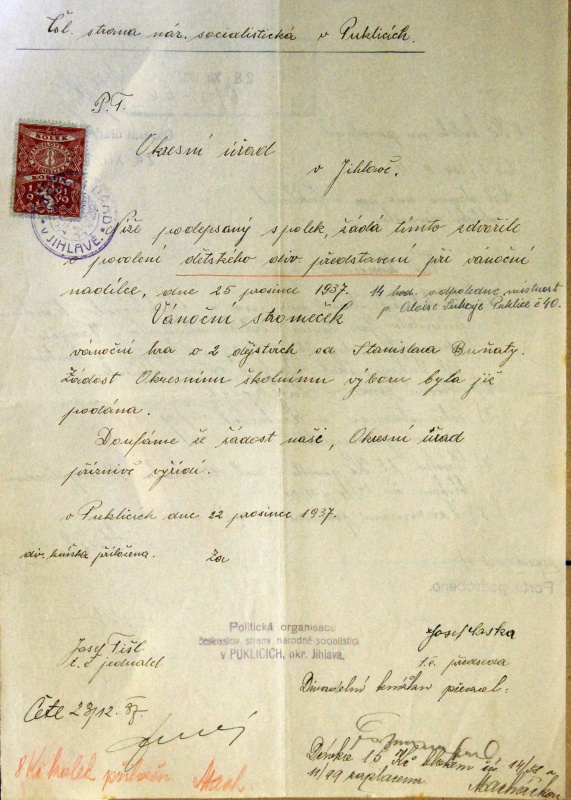 Čsl. strana nár. socialistická v Puklicích.
P.T.
Okresní úřad
v Jihlavě.
KOLEK
8
KOLEK
V JIHLAVĚ
Níže podepsaný spolek, žádá tímto zdvořile
o povolení dětského div. představení při vánoční
nadílce, dne 25 prosince 1937. 14 hod. odpoledne, místnost
p. Aloise Puklice č 40.
Vánoční stromeček
vánoční hra o 2 dějstvích od Stanislava Buňaty.
Žádost Okresnímu školnímu výboru byla již
podána.
Doufáme že žádost naši, Okresní úřad
příznivě vyřídí.
v Puklicích dne 22 prosince 1937.
div. knížka přiložena. Za
Politická organisace
českoslov. strany národně socialistic.
v PUKLICÍCH, okr. Jihlava.
Josef Fišl
t. č jednatel
Josef
t.č. předseda
Divadelní převzal:
Čete 23/12. 37.
8 Kč kolek přiložen Mach
15 Kč blokem čís 14/
11/99 zaplacena